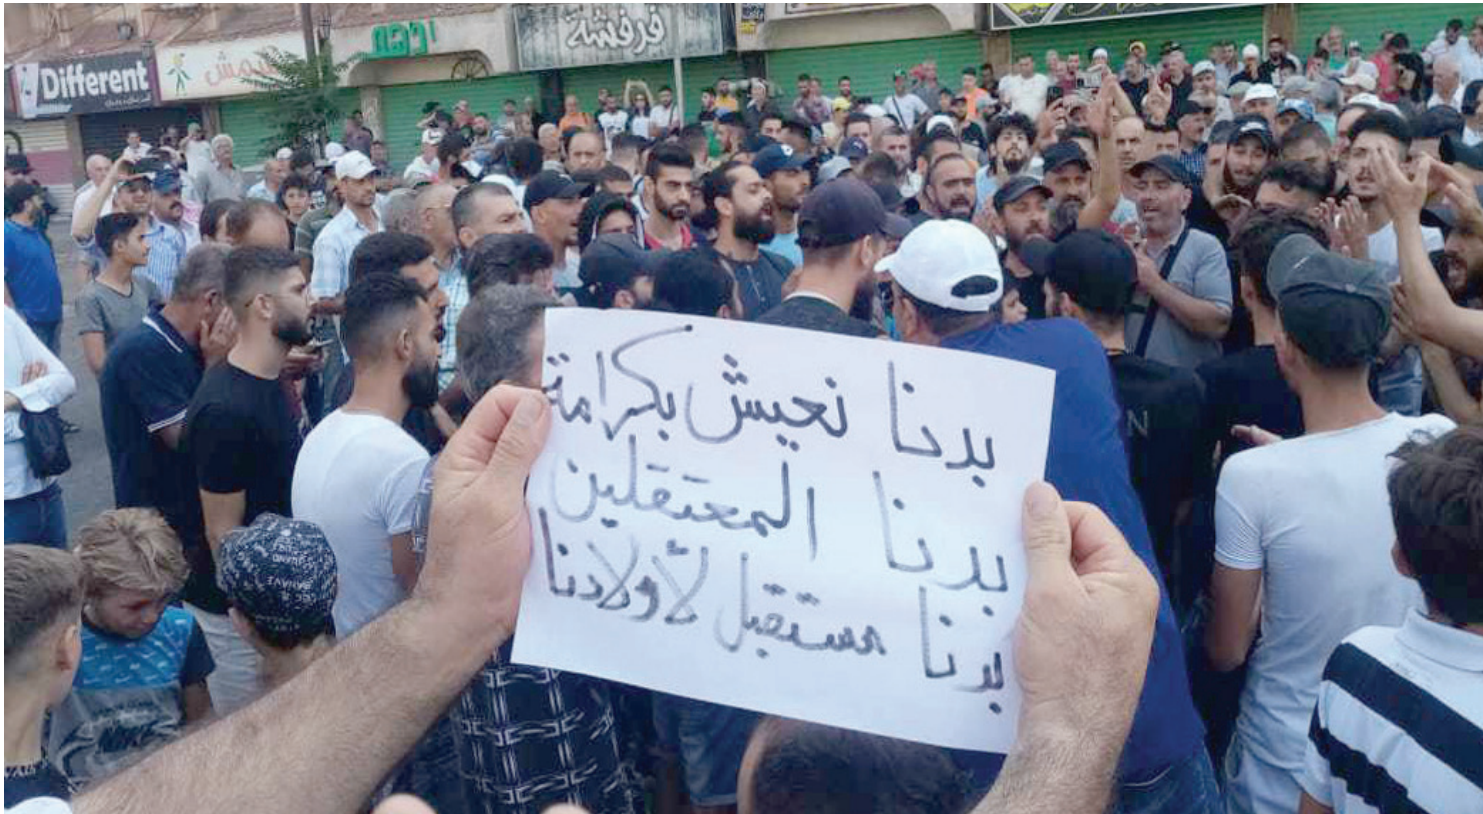 Different
مش
اوهو
فرفشة
بدنا نعيش بكرامة
بدنا المعتقلين
بدنا مستقبل لأولادنا
NIKE